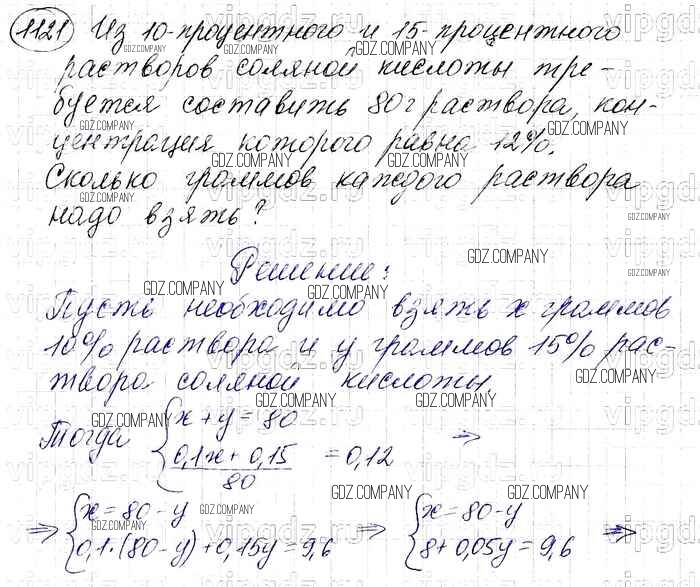 1121 Из 10-процентного и 15-процентного
растворов соляной кислоты тре-
буется составить 80 г раствора, кон-
центрация которого равна 12%.
Сколько граммов каждого раствора
надо взять?
Решение:
Пусть необходимо взять x граммов
10% раствора и y граммов 15% рас-
твора соляной кислоты.
Тогда { x + y = 80
(0,1x + 0,15)/80 = 0,12 ⇒
⇒ { x = 80 - y
0,1·(80 - y) + 0,15y = 9,6
⇒ { x = 80 - y
8 + 0,05y = 9,6 ⇒
GDZ.COMPANY
vipgdz.ru